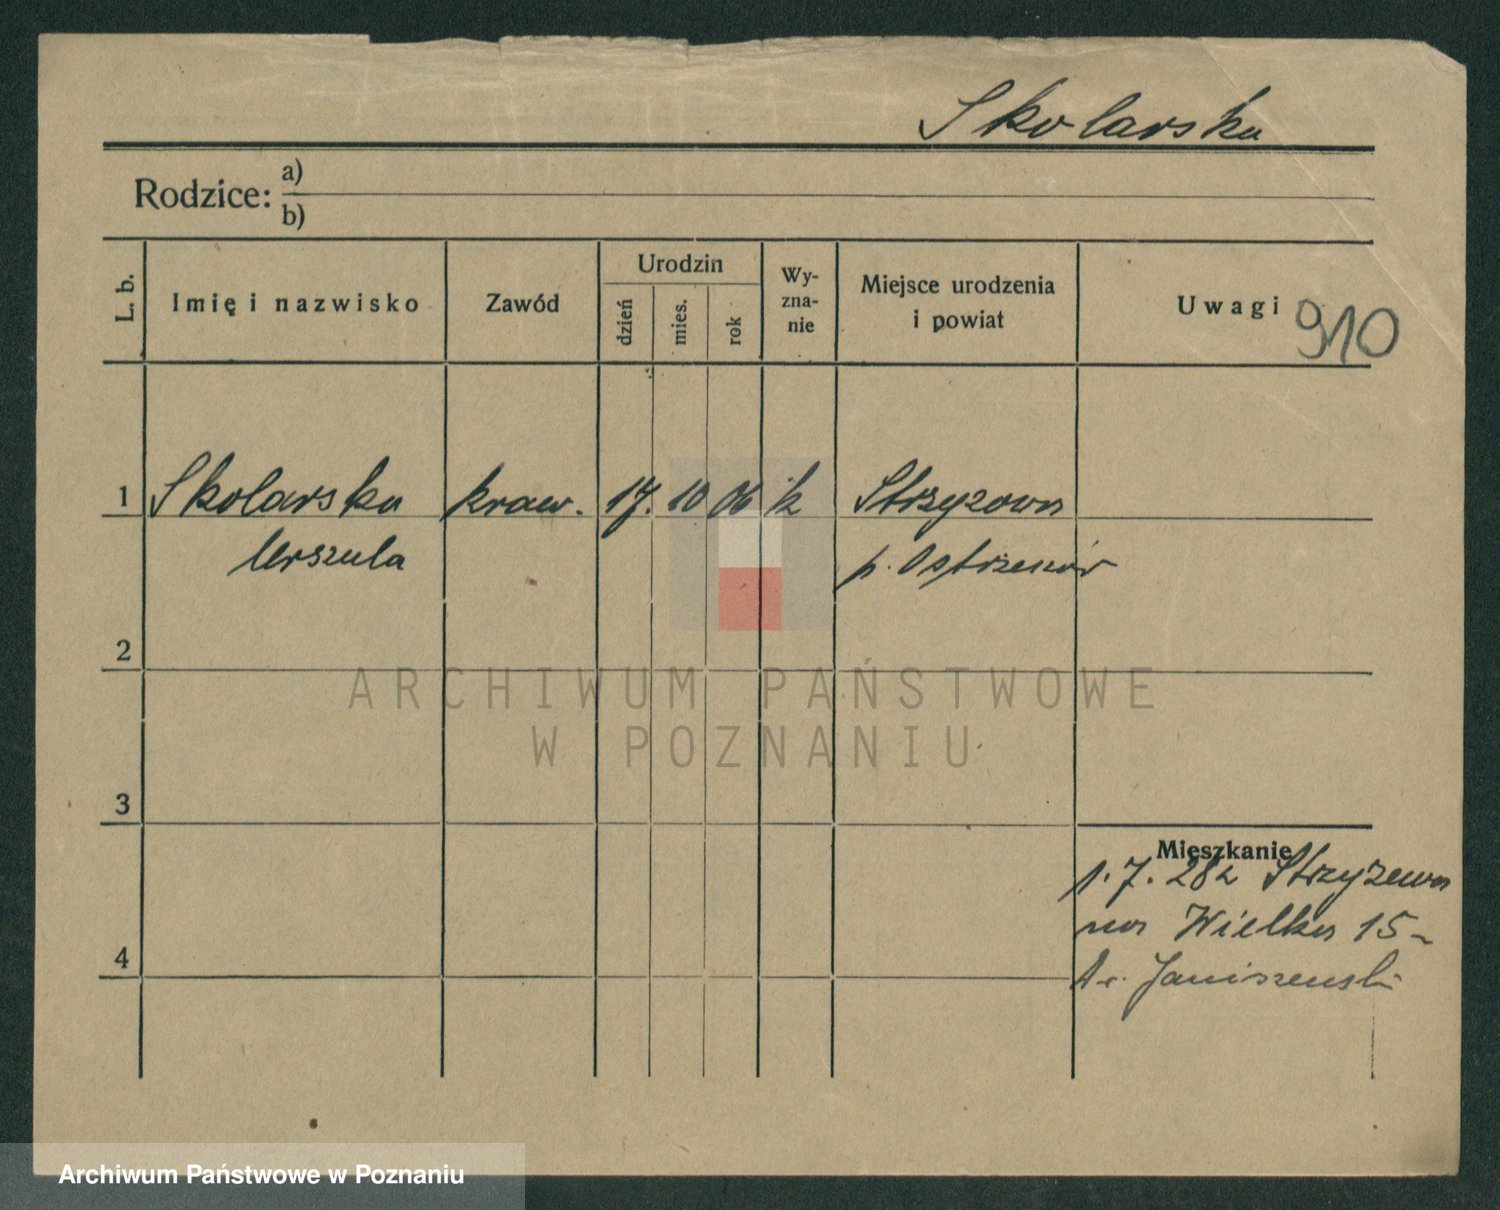 Skolarska
Rodzice: a)
b)
L. b. Imię i nazwisko Zawód Urodzin dzień mies. rok Wy-zna-nie Miejsce urodzenia i powiat Uwagi 910
1 Skolarska kraw. 17. 10 06 k Strzyżowa
Urszula p. Ostrzeszów
2
ARCHIWUM PAŃSTWOWE
W POZNANIU
3
Mieszkanie
1. 7. 282 Strzyżewa
Wielka 15-
Janiszewski
4
Archiwum Państwowe w Poznaniu